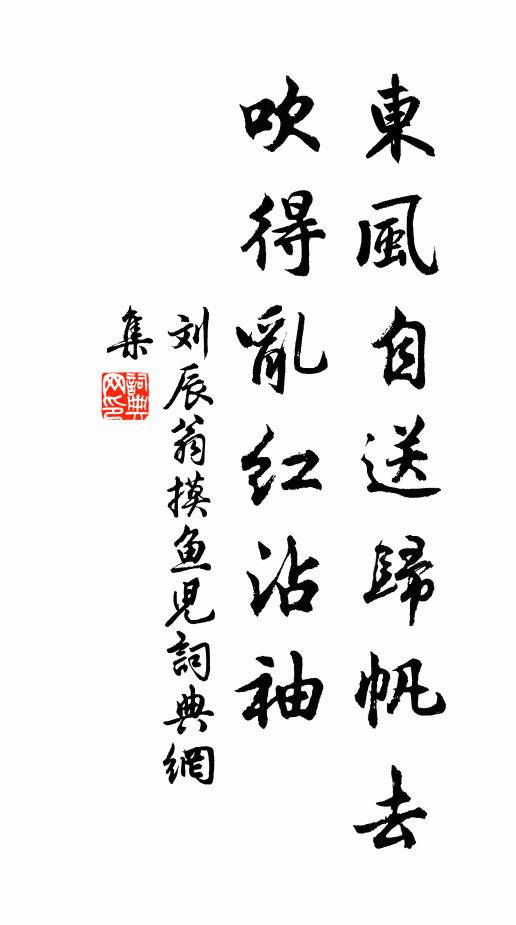 東風自送歸帆去
吹得亂红沾袖
刘辰翁摸鱼児詞典網
集
詞典
网印